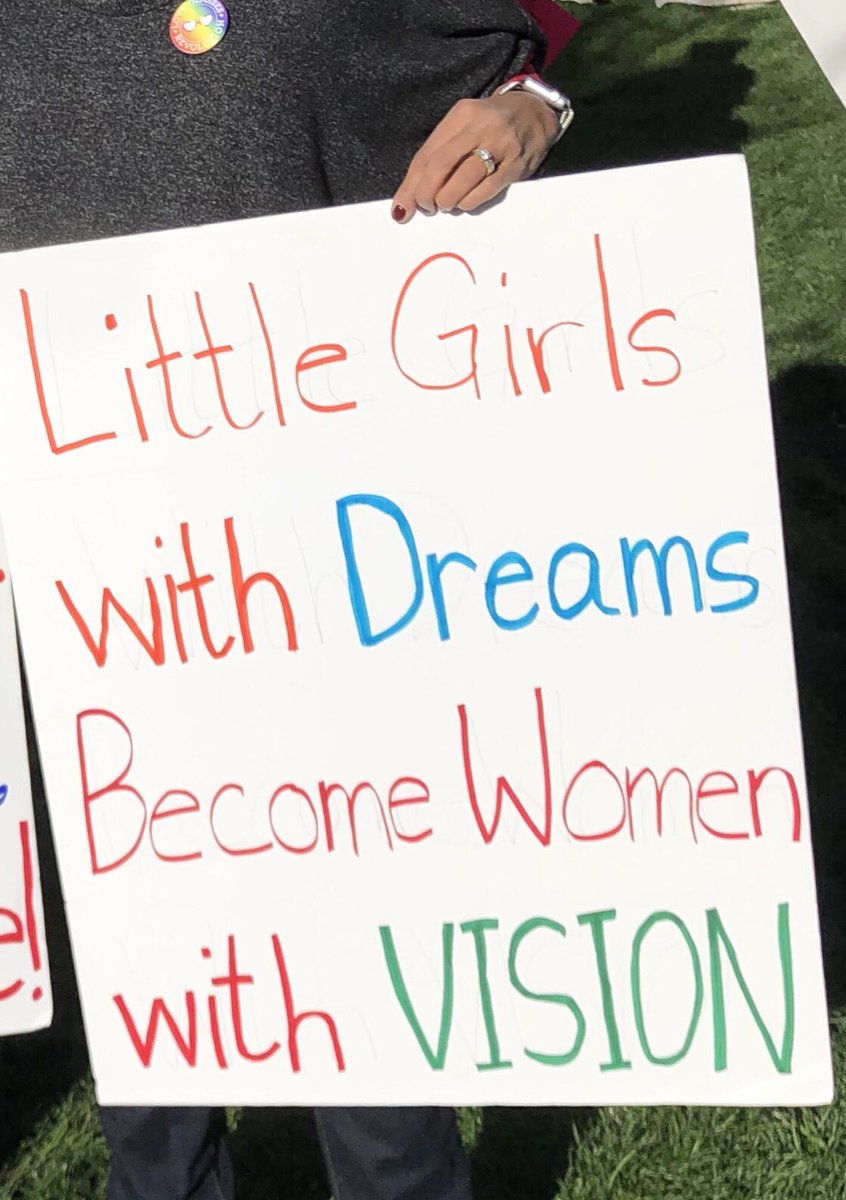 Little Girls
with Dreams
Become Women
with VISION
e!